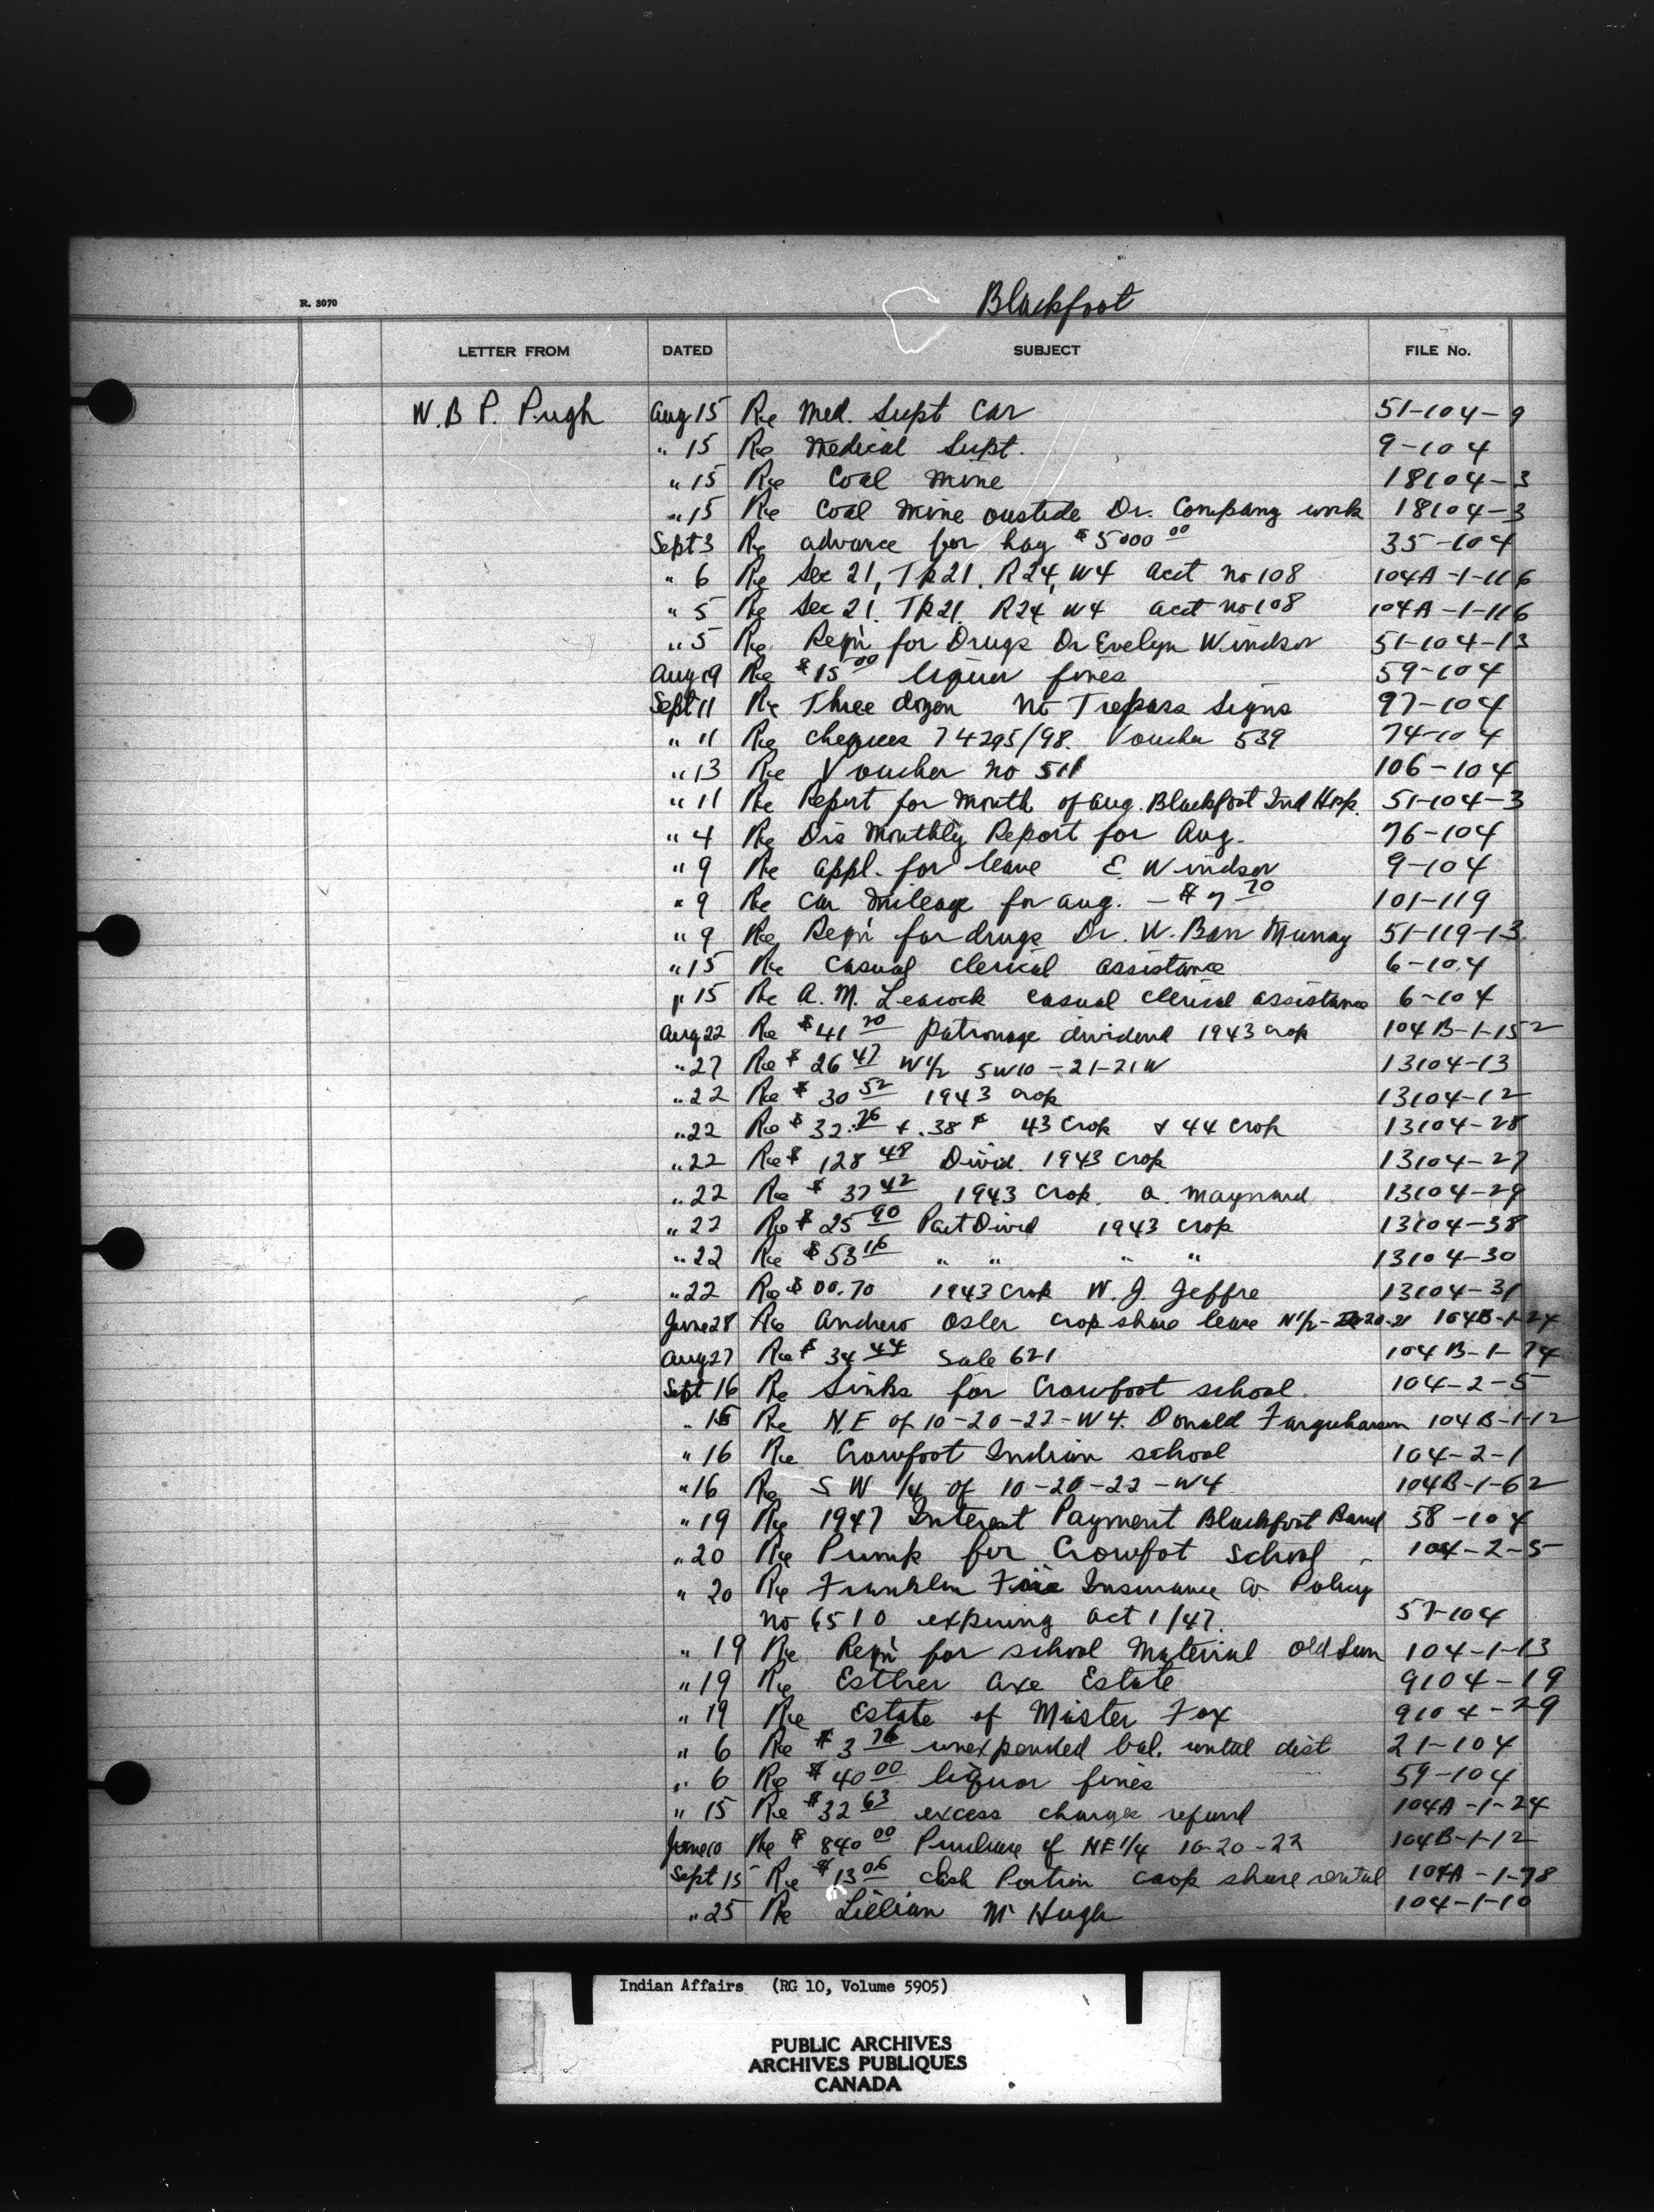 Blackfoot
R. 3070
LETTER FROM DATED SUBJECT FILE No.
W. B. P. Pugh Aug 15 Re Med. Supt Car 51-104-9
" 15 Re Medical Supt. 9-104
" 15 Re Coal Mine 18104-3
" 15 Re Coal Mine oustide Dr. Company work 18104-3
Sept 3 Re advance for hay $5000 00 35-104
" 6 Re Sec 21, TR21, R24, W4 acct no 108 104A-1-116
" 5 Re Sec 21, TR21, R24, W4 acct no 108 104A-1-116
" 5 Re Reqn for Drugs Dr Evelyn Windsor 51-104-13
Aug 19 Re $15 00 liquor fines 59-104
Sept 11 Re Three dozen No Trepass Signs 97-104
" 11 Re cheques 74295/98. Voucher 539 74-104
" 13 Re Voucher no 511 106-104
" 11 Re Report for Month of Aug. Blackfoot Ind Hosp. 51-104-3
" 4 Re Dis Monthly Report for Aug. 76-104
" 9 Re appl. for leave E Windsor 9-104
" 9 Re Car Mileage for Aug. - $7 70 101-119
" 9 Re Reqn for drugs Dr. W. Barr Murray 51-119-13
" 15 Re Casual Clerical assistance 6-104
" 15 Re A. M. Leacock casual clerical assistance 6-104
Aug 22 Re $41 20 Patronage dividend 1943 crop 104B-1-152
" 27 Re $26 47 W1/2 SW10-21-21W 13104-13
" 22 Re $30 52 1943 crop 13104-12
" 22 Re $32.76 + .38 ¢ 43 Crop & 44 Crop 13104-28
" 22 Re $128 48 Divid. 1943 Crop 13104-27
" 22 Re $37 42 1943 Crop. A. Maynard 13104-29
" 22 Re $25 90 Pat Divid 1943 crop 13104-38
" 22 Re $53 16 " " " " 13104-30
" 22 Re $00.70 1943 Crop W. J. Jeffre 13104-31
June 28 Re Andrew Osler crop share lease N1/2- 20-21 104B-1-24
Aug 27 Re $34 44 Sale 621 104B-1-74
Sept 16 Re Sinks for Crowfoot school. 104-2-5
" 16 Re N.E of 10-20-22-W4. Donald Farquharson 104B-1-12
" 16 Re Crowfoot Indian school 104-2-1
" 16 Re S W 1/4 of 10-20-22-W4 104B-1-62
" 19 Re 1947 Interest Payment Blackfoot Band 58-104
" 20 Re Pump for Crowfoot School 104-2-5
" 20 Re Franklin Fire Insurance Co. Policy
No 6510 expiring Oct 1/47. 57-104
" 19 Re Reqn for school Material Old Sun 104-1-13
" 19 Re Esther Axe Estate 9104-19
" 19 Re Estate of Mister Fox 9104-29
" 6 Re $3 76 unexpended bal. dist 21-104
" 6 Re $40 00 liquor fines 59-104
" 15 Re $32 63 excess charges refund 104A-1-24
June 10 Re $840 00 Purchase of NE1/4 10-20-22 104B-1-12
Sept 15 Re $13 06 Cash Portion crop share rental 104A-1-78
" 25 Re Lillian McHugh 104-1-10
Indian Affairs (RG 10, Volume 5905)
PUBLIC ARCHIVES
ARCHIVES PUBLIQUES
CANADA